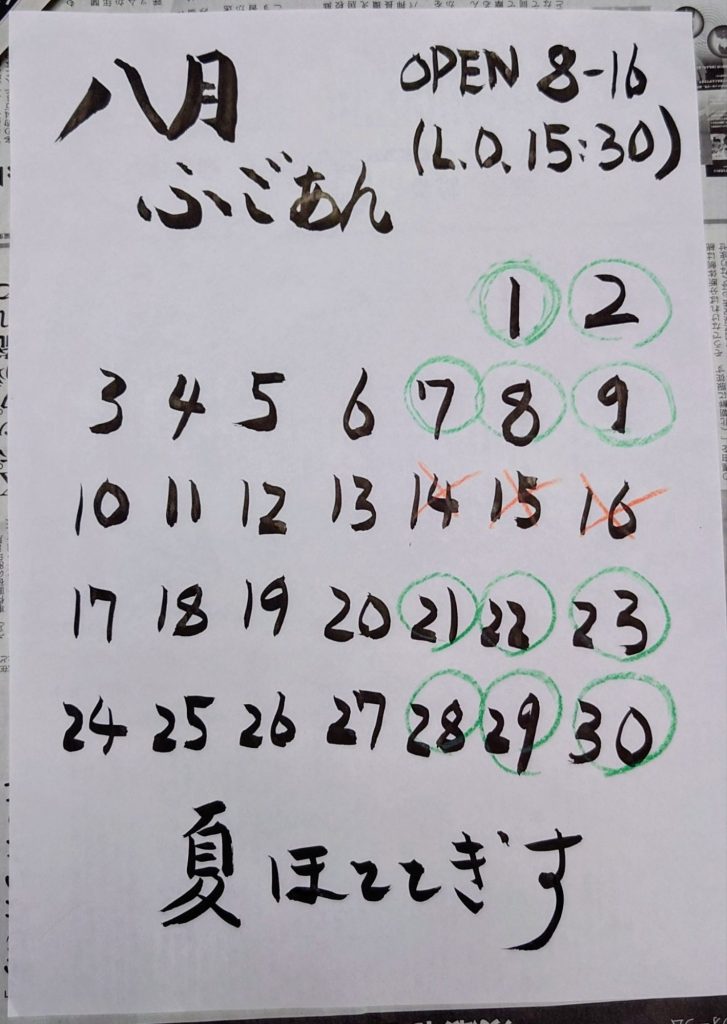 八月
OPEN 8-16
(L.O. 15:30)
ふごあん
1 2
3 4 5 6 7 8 9
10 11 12 13 14 15 16
17 18 19 20 21 22 23
24 25 26 27 28 29 30
夏ほととぎす